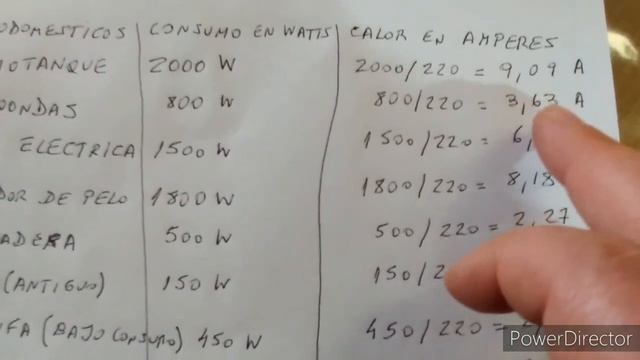 ODOMESTICOS CONSUMO EN WATTS CALOR EN AMPERES
OTANQUE 2000 W 2000/220 = 9,09 A
OONDAS 800 W 800/220 = 3,63 A
ELECTRICA 1500 W 1500/220 = 6,
DOR DE PELO 1800 W 1800/220 = 8,18
ADERA 500 W 500/220 = 2,27
(ANTIGUO) 150 W 150/2
FA (BAJO CONSUMO) 450 W 450/220 =
PowerDirector